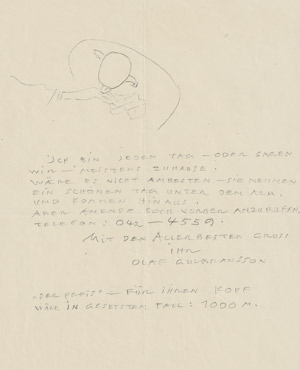 ICH BIN JEDEN TAG — ODER SAGEN
WIR — MEISTENS ZUHAUSE.
WÄRE ES NICHT AMBESTEN — SIE NEHMEN
EIN SCHÖNEN TAG UNTER DEM ARM.
UND KOMMEN HINAUS.
ABER AMENDE DOCH VORHER ANZURUFEN,
TELEFON: 042 — 4559.
MIT DEN ALLERBESTEN GRUSS
IHR
OLAF GULBRANSSON
"DER PREIS" — FÜR IHREN KOPF
WÄRE IN GESETZTEM FALL: 1000 M.